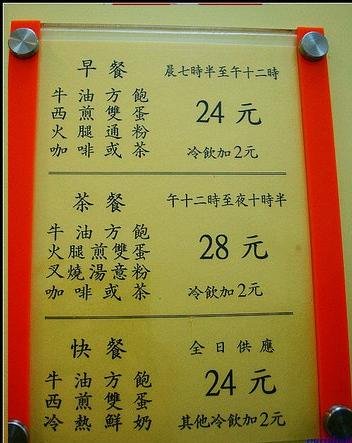 早餐 晨七時半至午十二時
牛油方飽
西煎雙蛋 24元
火腿通粉
咖啡或茶 冷飲加2元
茶餐 午十二時至夜十時半
牛油方飽
火腿煎雙蛋 28元
叉燒湯意粉
咖啡或茶 冷飲加2元
快餐 全日供應
牛油方飽
西煎雙蛋 24元
冷熱鮮奶 其他冷飲加2元